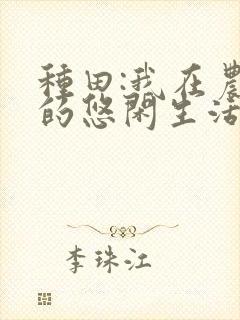 種田:我在農
的悠閑生活
李珠江